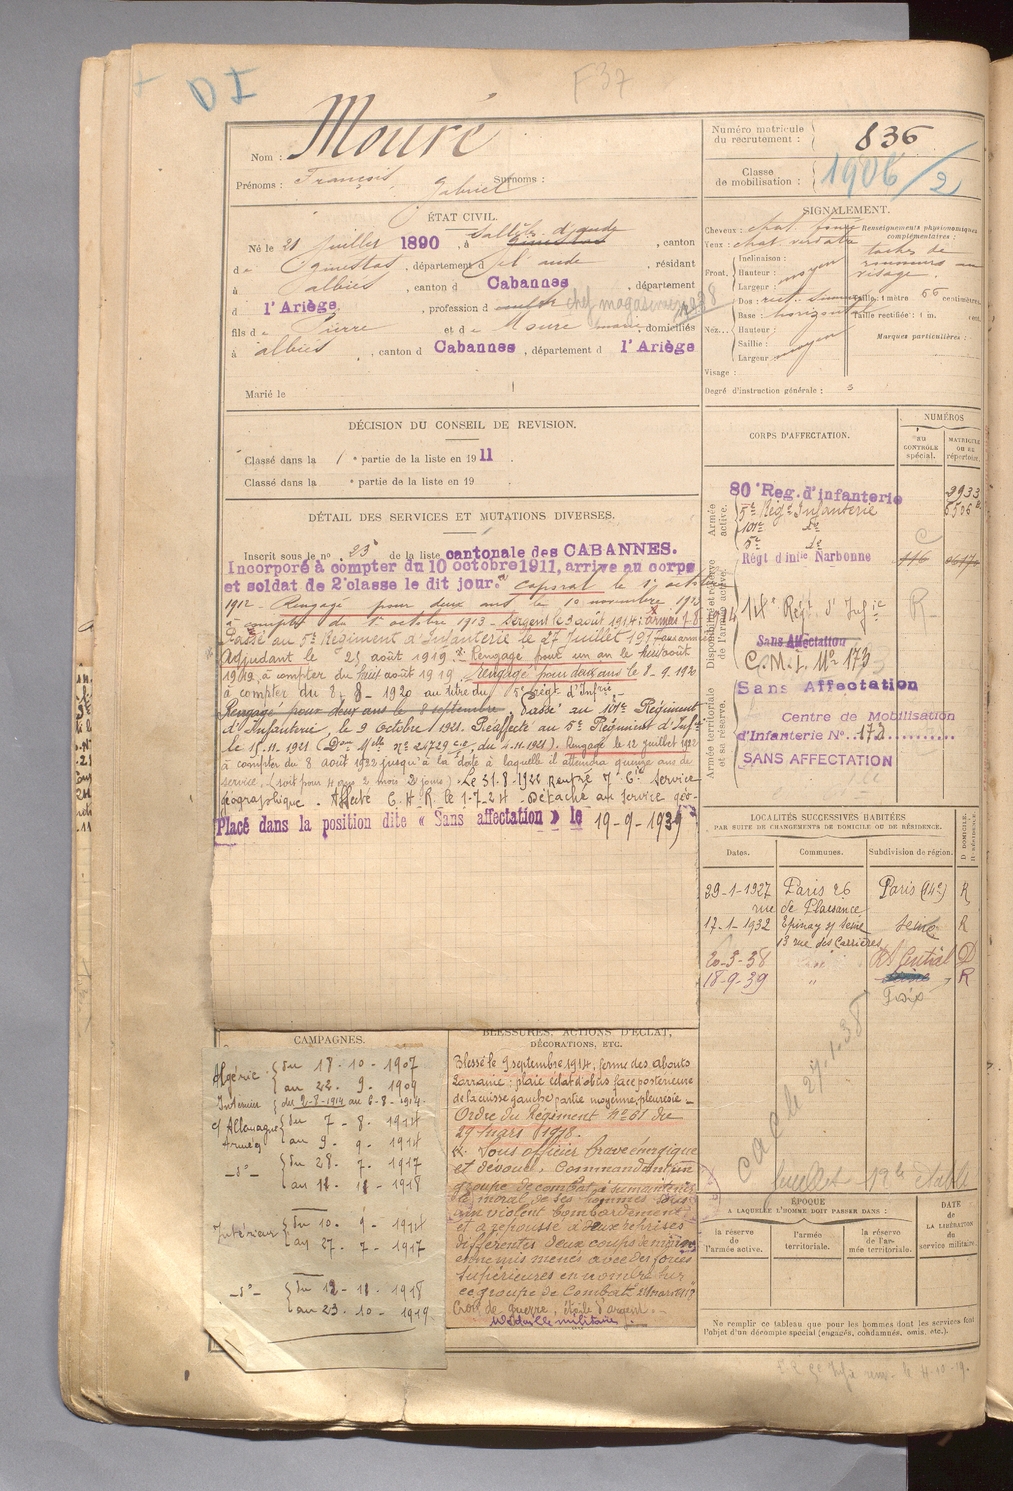 D I
F 37
Nom : Mouré
Prénoms : François, Gabriel Surnoms :
ÉTAT CIVIL.
Né le 21 juillet 1890, à Sallèles d'aude, canton
de Ginestas, département de l'aude, résidant
à albiès, canton d Cabannes, département
d l'Ariège, profession de chef magasinier
fils de Pierre et de Moure marie, domiciliés
à albiès, canton d Cabannes, département d l'Ariège
Marié le
DÉCISION DU CONSEIL DE REVISION.
Classé dans la 1e partie de la liste en 1911.
Classé dans la e partie de la liste en 19 .
DÉTAIL DES SERVICES ET MUTATIONS DIVERSES.
Inscrit sous le no 23 de la liste cantonale des CABANNES.
Incorporé à compter du 10 octobre 1911, arrivé au corps
et soldat de 2e classe le dit jour. caporal le 1er octobre
1912 - Rengagé pour deux ans le 10 novembre 1912
à compter du 1er octobre 1913 - Sergent le 3 août 1914 :
Passé au 5e Régiment d'Infanterie le 27 Juillet 1917
Adjudant le 25 août 1919. Rengagé pour un an le huit août
1919, à compter du huit août 1919. Rengagé pour deux ans le 8-9-1920
à compter du 8-8-1920 au titre du 5e Régt d'Infrie
Rengagé pour deux ans le 8 septembre. Passé au 101e Régiment
d'Infanterie, le 9 octobre 1921. Réaffecté au 5e Régiment d'Infie
le 15.11.1921 (Don Mlle No 24729 , du 4.11.1921). Rengagé le 12 juillet 1922
à compter du 8 août 1922 jusqu'à la date à laquelle il atteindra quinze ans de
service, (soit pour 4 ans 2 mois 2 jours). Le 31.8.1922 rentré 7e Cie Service
géographique. Affecté C.H.R. le 1-7-24 - Détaché au service géo-
Placé dans la position dite « Sans affectation » le 19-9-1939
CAMPAGNES.
Algérie { du 18-10-1907
au 22. 9. 1909
Intérieur { du 2-8-1914 au 6-8-1914
c/ Allemagne { du 7-8-1914
au 9. 9. 1914
-do- { du 28. 7. 1917
au 11-11-1918
Intérieur { du 10. 9-1914
au 27. 7-1917
-do- { du 12-11-1918
au 23.10-1919
BLESSURES, ACTIONS D'ÉCLAT,
DÉCORATIONS, ETC.
Blessé le 9 septembre 1914, ferme des abouts
Lorraine : plaie éclat d'obus face postérieure
de la cuisse gauche partie moyenne, pleurésie -
Ordre du Régiment No 61 du
29 mars 1918.
Sous officier brave énergique
et dévoué, commandant un
groupe de combat, a su maintenir
le moral de ses hommes sous
un violent bombardement
et a repoussé à deux reprises
différentes deux coups de main
ennemis menés avec des forces
supérieures en nombre sur
ce groupe de Combat
Croix de guerre, étoile d'argent. -
Médaille militaire.
Numéro matricule du recrutement : 836
Classe de mobilisation : 1906/2
SIGNALEMENT.
Cheveux : chat. foncé
Yeux : chat verdâtre
Front. Inclinaison :
Hauteur : moyen
Largeur :
Nez. Dos : rect.
Base : horizontale
Hauteur :
Saillie :
Largeur : moyen
Visage :
Degré d'instruction générale : 3
Renseignements physionomiques complémentaires :
taches de rousseurs au visage.
Taille : 1 mètre 66 centimètres.
Taille rectifiée : 1 m. cent.
Marques particulières :
CORPS D'AFFECTATION.
NUMÉROS
AU CONTRÔLE spécial.
MATRICULE OU AU répertoire.
Armée active.
80e Reg. d'infanterie 2933
5e Régt Infanterie
101e do
5e do
Disponibilité et réserve de l'armée active.
Régt d'Infie Narbonne
Sans Affectation
C.M.I. No 173
Armée territoriale et sa réserve.
Sans Affectation
Centre de Mobilisation
d'Infanterie No 173
SANS AFFECTATION
LOCALITÉS SUCCESSIVES HABITÉES
PAR SUITE DE CHANGEMENTS DE DOMICILE OU DE RÉSIDENCE.
Dates. Communes. Subdivision de région. D DOMICILE. R RÉSIDENCE.
29-1-1927 Paris 26 Paris (14e) R
rue de Plaisance
17-1-1932 Epinay s/ Seine Seine R
13 rue des Carrières
20-3-38 Rt Central D
18-9-39 " Seine R
Foix
ÉPOQUE
A LAQUELLE L'HOMME DOIT PASSER DANS :
la réserve de l'armée active.
l'armée territoriale.
la réserve de l'armée territoriale.
DATE de LA LIBÉRATION du service militaire.
Ne remplir ce tableau que pour les hommes dont les services font
l'objet d'un décompte spécial (engagés, condamnés, omis, etc.).